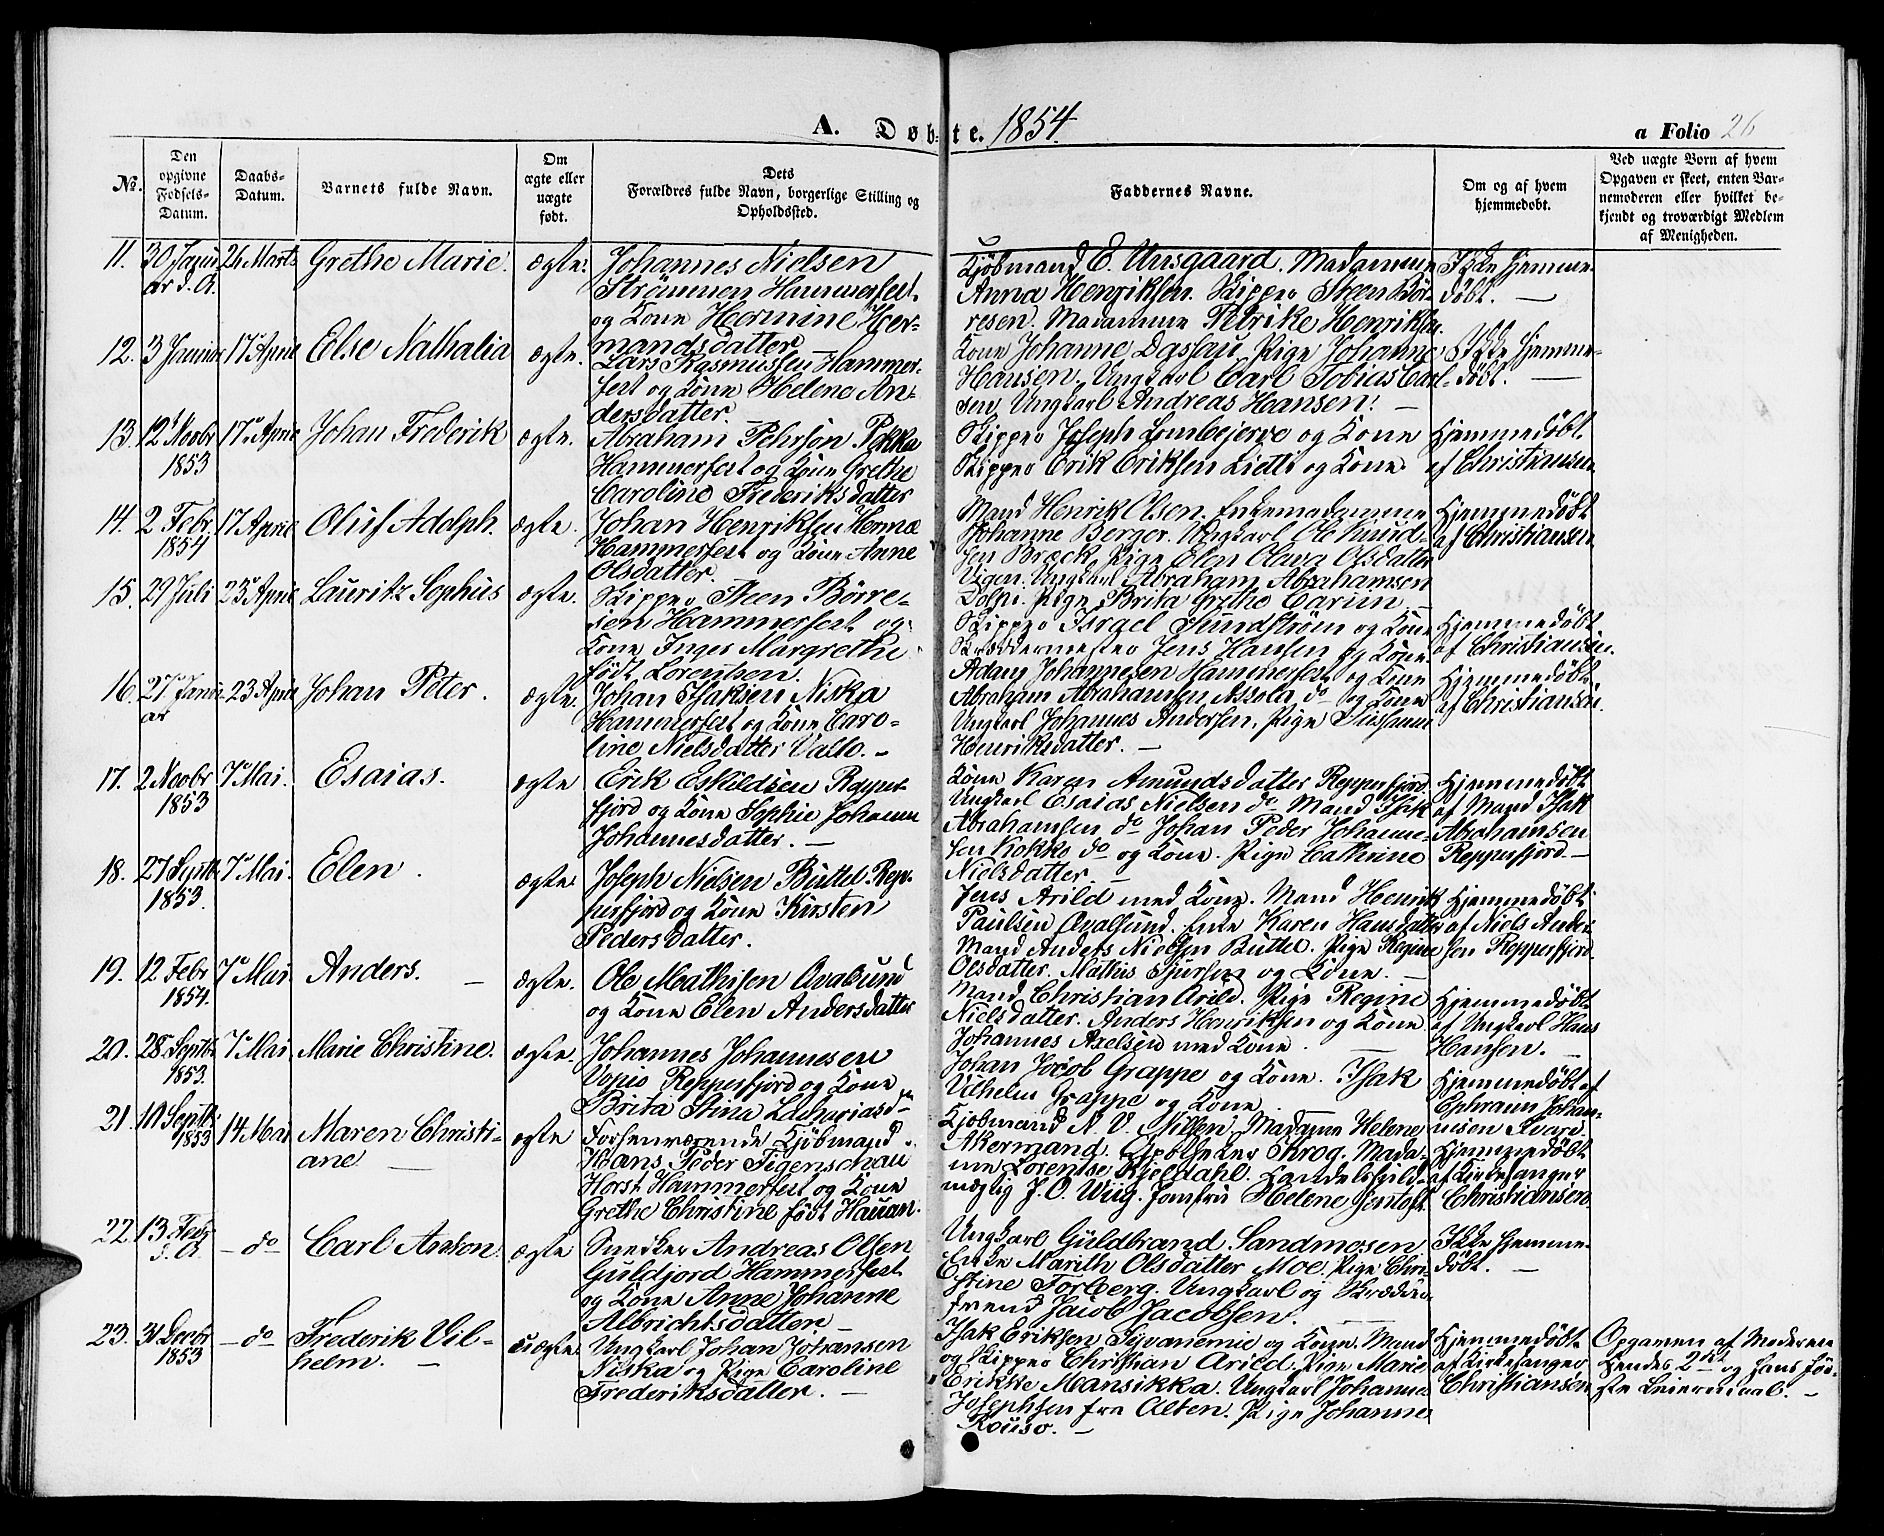 A. Døb-te. 1854. a Folio 26
No. | Den opgivne Fødsels-Datum. | Daabs-Datum. | Barnets fulde Navn. | Om ægte eller uægte født. | Dets Forældres fulde Navn, borgerlige Stilling og Opholdssted. | Faddernes Navne. | Om og af hvem hjemmedøbt. | Ved uægte Born af hvem Opgaven er skeet, enten Barnemoderen eller hvilket bekjendt og troværdigt Medlem af Menigheden.
11. 30 Januar d. A. 26 Marts Grethe Marie. ægte.
Johannes Nielsen
Strømmen Hammerfest
og Kone Hermine Her-
mandsdatter
Kjøbmand E. Unsgaard. Madamme
Anna Henriksen. Skipper Steen Bør-
resen. Madamme Petrike Henriksen.
Ikke hjemme-
døbt. —
12. 3 Januar 17 April Else Nathalia ægte.
Lars Rasmussen Hammer-
fest og Kone Helene An-
dersdatter.
Kone Johanne Dassau. Pige Johanne
Hansen. Ungkarl Carl Tobias Carl-
sen. Ungkarl Andreas Hansen. —
Ikke hjemme-
døbt. —
13. 12 Novbr 1853 17 April Johan Frederik ægte.
Abraham Pehrson Pokka
Hammerfest og Kone Grethe
Caroline Frederiksdatter
Skipper Joseph og Kone
Skipper Erik Eriksen Lietti og Kone.
Hjemmedøbt
af Christiansen
14. 2 Febr 1854 17 April Oluf Adolph. ægte.
Johan Henriksen
Hammerfest og Kone Anne
Olsdatter.
Mand Henrik Olsen. Enkemadamme
Johanne Berger. Ungkarl Ole Knud-
sen Bræck. Pige Elen Olava Olsdatter
Vigen. Ungkarl Abraham Abrahamsen
Dolpi. Pige Brita Grethe Carim. —
Hjemmedøbt
af Christiansen
15. 29 Juli 23 April Lauritz Sophus ægte.
Skipper Steen Børre-
sen Hammerfest og
Kone Inger Margrethe
født Lorentsen.
Skipper Israel Sundstrøm og Kone
Skreddermester Jens Hansen og Kone.
Hjemmedøbt
af Christiansen.
16. 27 Janu-ar 23 April Johan Peter. ægte.
Johan Isaksen Niska
Hammerfest og Kone Caro-
line Nielsdatter Vallo. —
Adam Johannesen Hammerfest og Kone
Abraham Abrahamsen Assola do og Kone
Ungkarl Johannes Andersen, Pige Susanne
Henriksdatter. —
Hjemmedøbt
af Christiansen.
17. 2 Novbr 1853 7 Mai. Esaias. ægte
Erik Eskildsen Repper-
fjord og Kone Sophie Johanne
Johannesdatter. —
Kone Karen Amundsdatter Repperfjord
Ungkarl Esaias Nielsen do Mand Isak
Abrahamsen do Johan Peder Johanne-
sen Kokko do og Kone. Pige Cathrine
Nielsdatter. —
Hjemmedøbt
af Mand Isak
Abrahamsen
Repperfjord. —
18. 27 Septbr 1853. 7 Mai. Elen. ægte
Joseph Nielsen Buttel Rep-
perfjord og Kone Kirsten
Pedersdatter.
Jens Arild med Kone. Mand Henrik
Paulsen Qvalsund. Enke Karen Hansdatter
Mand Anders Nielsen Buttel. Pige Regine
Olsdatter. Mathis Sjursen og Kone. —
Hjemmedøbt
af Niels Ander-
sen Repperfjord.
19. 12 Febr 1854. 7 Mai. Anders. — ægte.
Ole Mathisen Qvalsund
og Kone Elen Andersdatter
Mand Christian Arild. Pige Regine
Nielsdatter. Anders Henriksen og Kone
Johannes Axelsen med Kone. —
Hjemmedøbt
af Ungkarl Hans
Hansen. —
20. 28 Septbr 1853. 7 Mai Marie Christine. ægte.
Johannes Johannesen
Vopio Repperfjord og Kone
Brita Stina
Johan Jacob Grappe og Kone. Isak
Vilhelm Grappe og Kone.
Hjemmedøbt af
Ephraim Johan-
nesen Kvare.
21. 10 Septbr 1853 14 Mai Maren Christi-
ane — ægte
Forhenværende Kjøbmand
Hans Peder Figenschau
Horst Hammerfest og Kone
Grethe Christine født Hauan.
Kjøbmand N. V. Nilsen, Madame Helene
Akermand. Apotheker Krog. Mada-
me Lorentse Kjeldahl. Handelsfuld-
mægtig J. O. Wiig. Jomfru Helene Jentoft.
Hjemmedøbt
af Kirkesanger
Christiansen.
22. 13 Febr d. A. — do Carl Anton ægte
Snedker Andreas Olsen
Guldjord Hammerfest
og Kone Anne Johanne
Albrichtsdatter —
Ungkarl Guldbrand Sandmosen.
Enke Marith Olsdatter Moe. Pige Chri-
stine Torberg. Ungkarl og Skrædder-
svend Jacob Jacobsen. —
Ikke hjemme-
døbt. —
23. 31 Decbr 1853 — do Frederik Vil-
helm. — uægte.
Ungkarl Johan Johansen
Niska og Pige Caroline
Frederiksdatter. —
Isak Eriksen og Kone. Mand
og Skipper Christian Arild. Pige Marie
Erikke Mansikka. Ungkarl Johannes
Josephsen fra Alten. Pige Johanne
Rouso. —
Hjemmedøbt
af Kirkesanger
Christiansen
Opgaven af Moderen
Hendes 2det og hans før-
ste Leiermaal. —